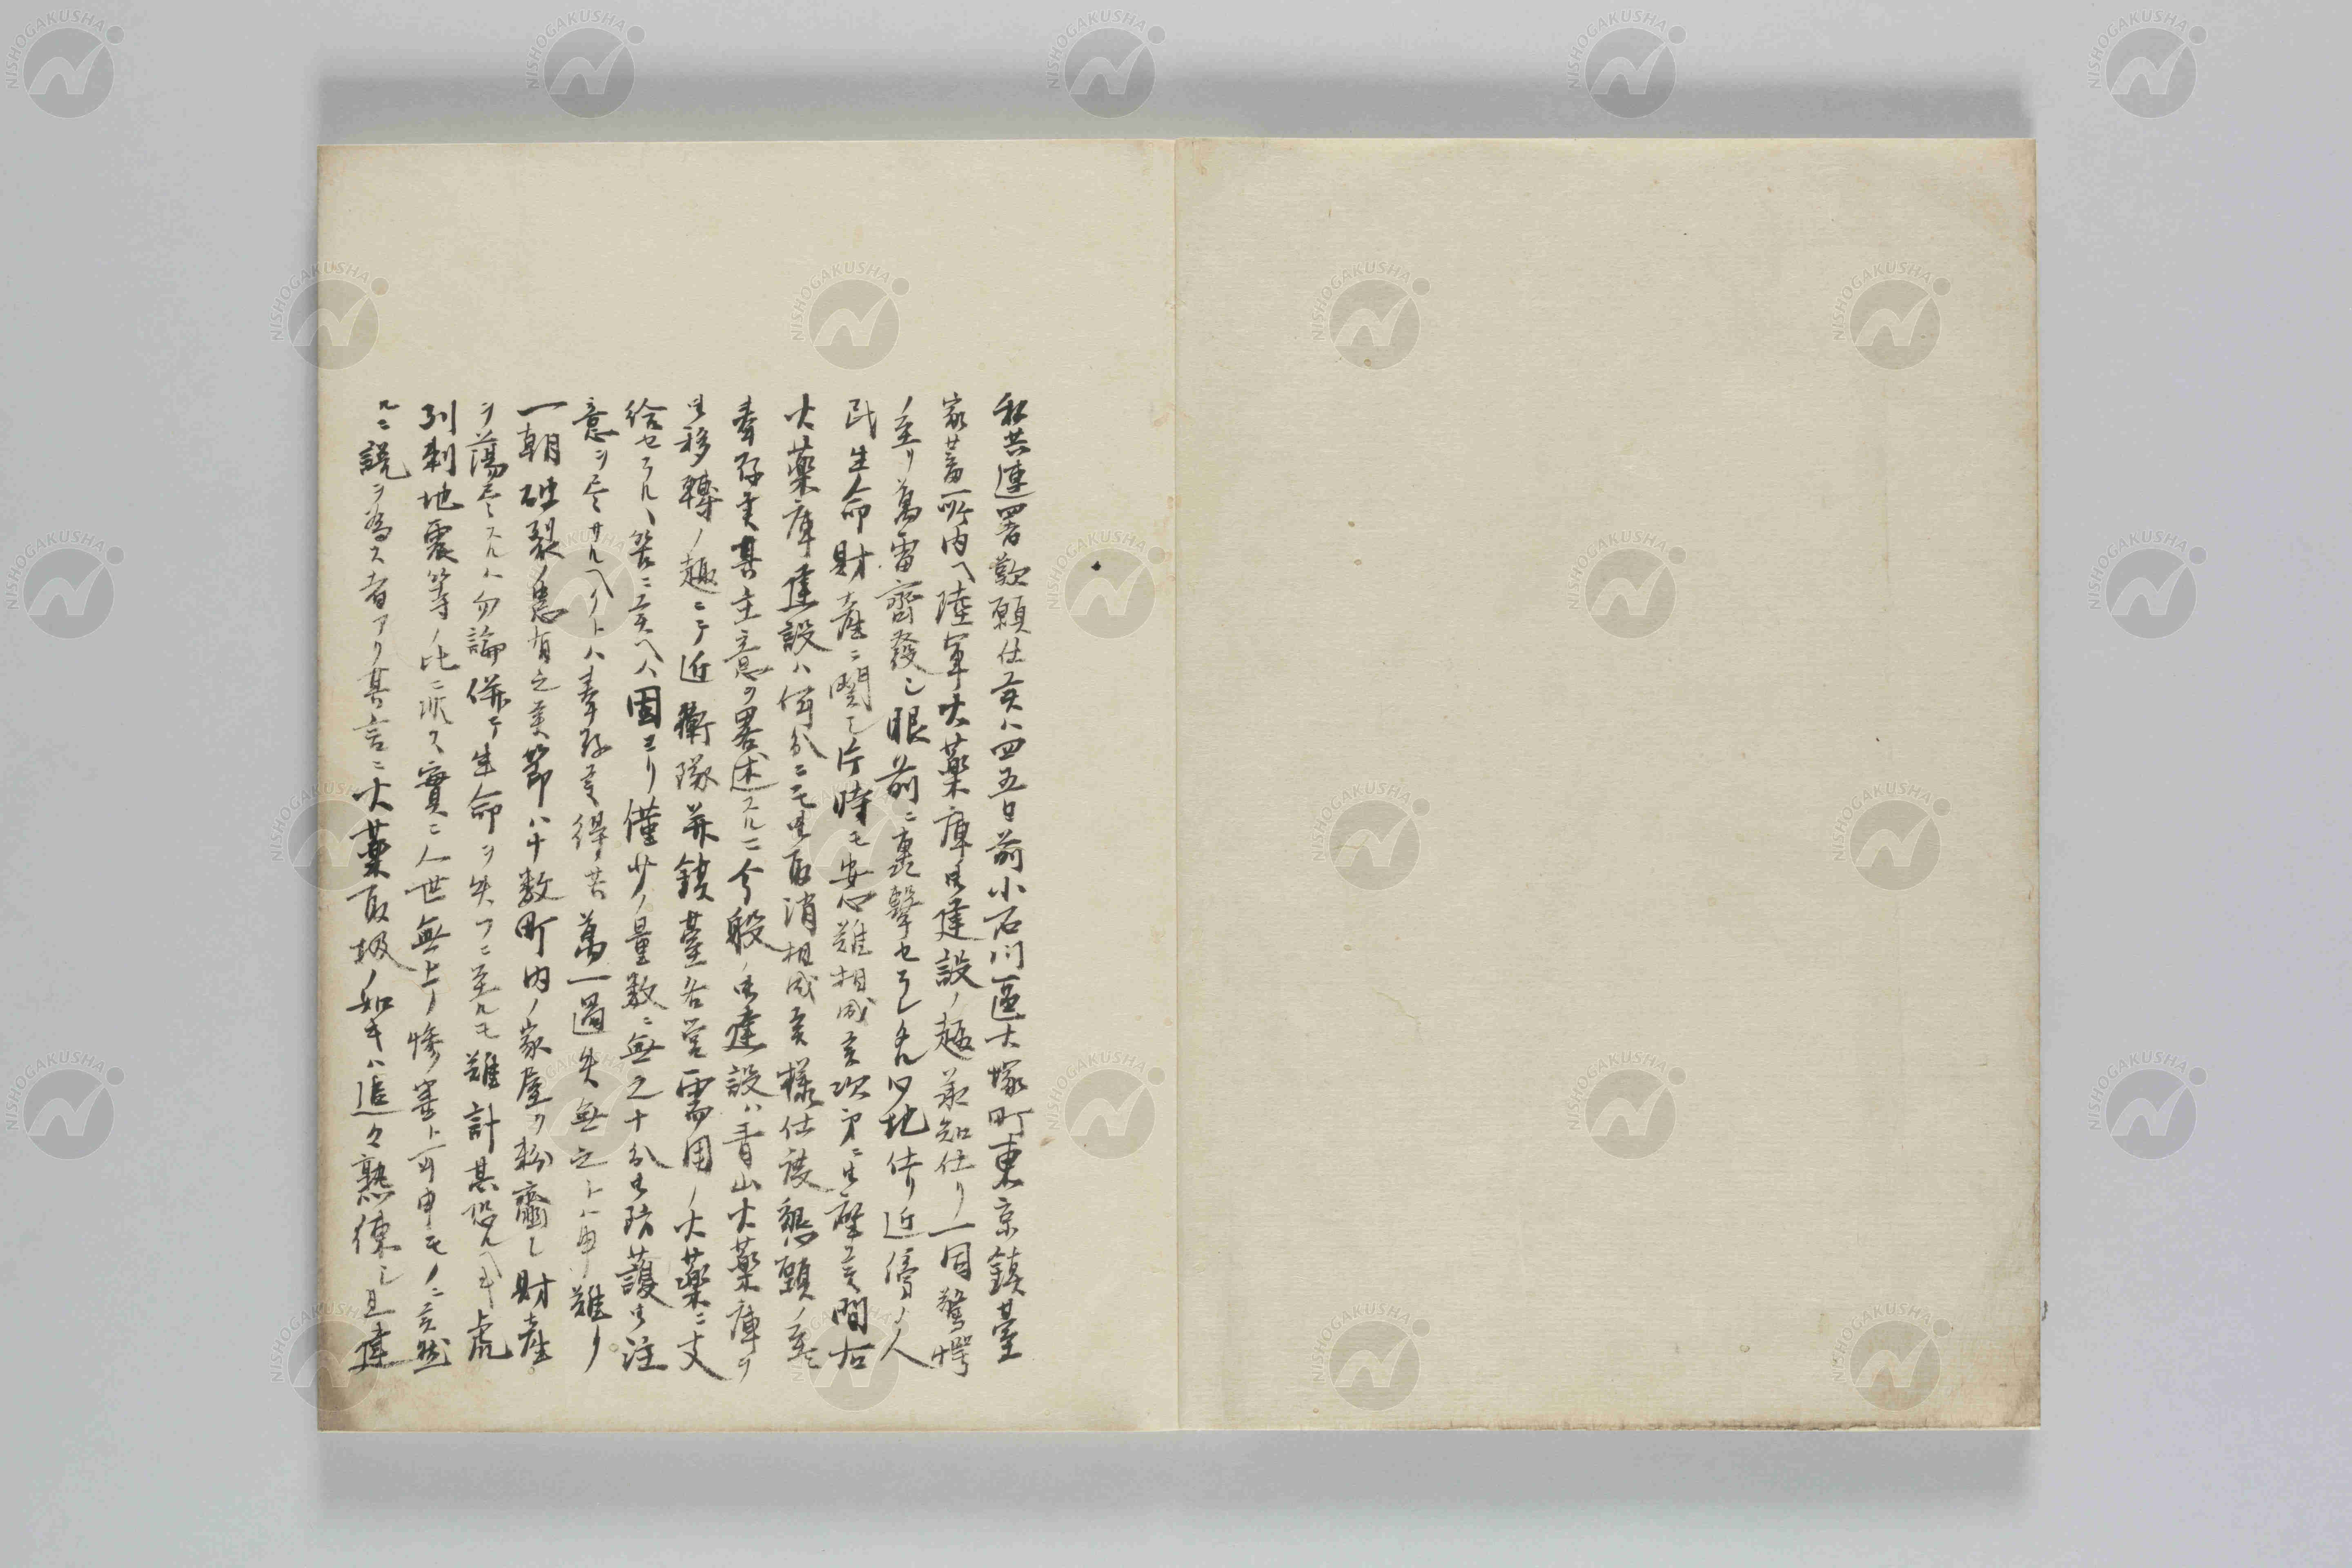 私共連署歎願仕候ハ四五日前小石川區大塚町東京鎮臺
家蓄所内ヘ陸軍火薬庫御建設ノ趣承知仕リ一同驚愕
ノ至リ萬雷齊發シ眼前ニ轟撃セラレタル心地仕リ近傍ノ人
民生命財産ニ関シ片時モ安心難相成候次第ニ御座候間右
火薬庫建設ハ何分ニモ御取消相成候様仕度懇願ノ至ニ
奉存候其主意ヲ畧述スルニ今般ノ御建設ハ青山火薬庫ヲ
御移轉ノ趣ニテ近衛隊并鎮臺各営需用ノ火薬ニ支
給セラルヽ筈ニ候ヘハ固ヨリ僅少ノ量数ニ無之十分御防護御注
意ヲ尽サルヘクトハ奉存候得共萬一過失無之トハ申難ク
一朝破裂ノ患有之候節ハ十数町内ノ家屋ヲ粉齏シ財産
ヲ蕩尽スルハ勿論併テ生命ヲ失フニ至ルモ難計其恐ルヘキ虎
列剌地震等ノ比ニ非ス實ニ人世無上ノ惨害ト可申モノニ候然
ルニ説ヲ為ス者アリ其言ニ火薬取扱ノ如キハ追々熟練シ且建
NISHOGAKUSHA